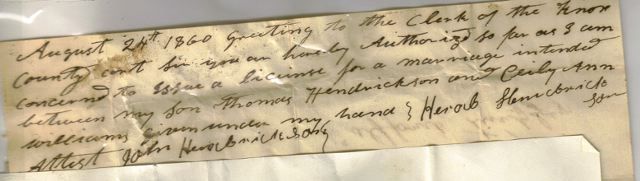 August 24th 1860 Greeting to the Clerk of the Knox
County cort Sir you are hearby Authorized so far as I am
concerned to Issue a license for a marriage intended
between my son Thomas Hendrickson and Cecily Ann
Williams Given under my hand } Herod Hendrick
son
Attest John Hendrickson }